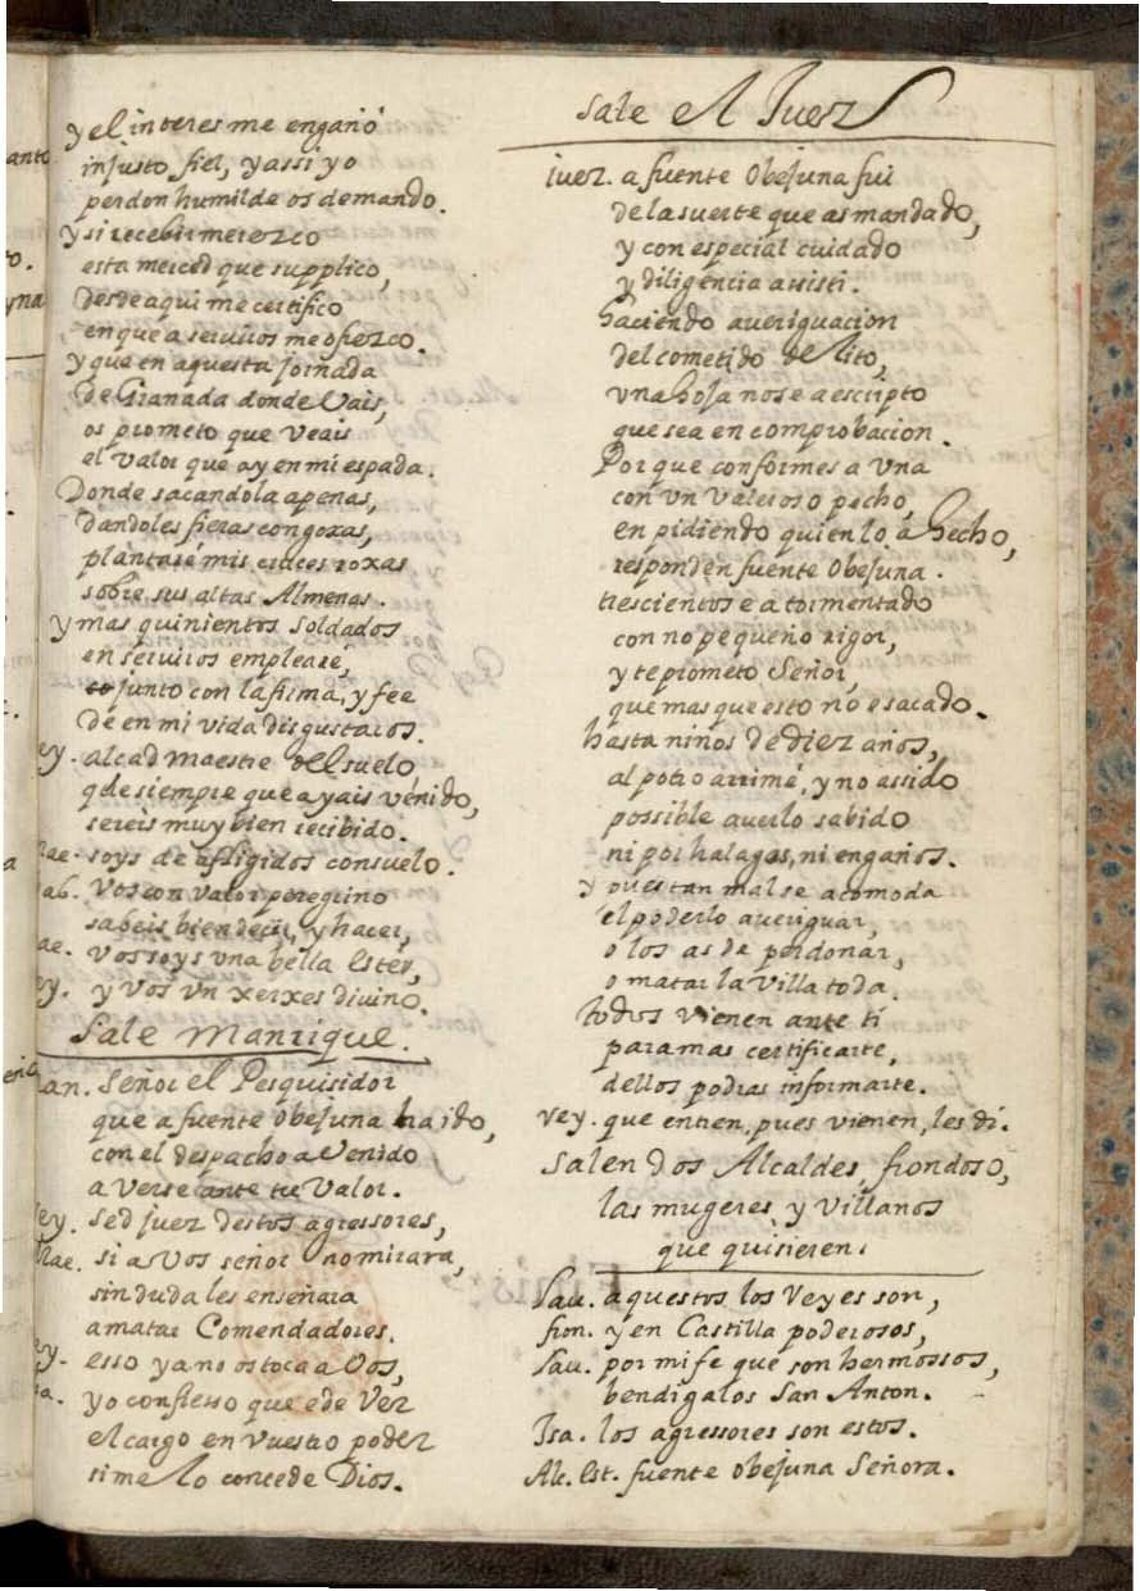 y el interes me engañó
injusto fiel, y assi yo
perdon humilde os demando.
y si recebir merezco
esta merced que supplico,
desde aqui me certifico
en que a serviros me ofrezco.
y que en aquesta jornada
de Granada donde Vais,
os prometo que Veais
el valor que ay en mi espada.
Donde sacandola apenas,
dandoles fieras congoxas,
plantaré mis cruces roxas
sobre sus altas Almenas.
y mas quinientos soldados
en serviros emplearé,
junto con la firma, y fee
de en mi vida disgustaros.
ey. alcad maestre del suelo,
q de siempre que ayais venido,
sereis muy bien recibido.
ae. soys de afligidos consuelo.
ab. Vos con valor peregrino
sabeis bien decir, y hacer,
ae. Vos soys una bella Ester,
ey. y Vos Un xerxes divino.
Sale Manrique.
an. Señor el Pesquisidor
que a fuente Obejuna ha ido,
con el despacho a Venido
a Verse ante tu Valor.
ey. sed juez destos agressores,
ae. si a Vos señor no mirara,
sin duda les enseñara
a matar Comendadores.
ey. esso ya no os toca a Vos,
a. yo confiesso que e de Ver
el cargo en Vuestro poder
si me lo concede Dios.
Sale el Juez
juez. a fuente Obejuna fui
de la suerte que as mandado,
y con especial cuidado
y diligencia assisti.
Haciendo averiguacion
del cometido delito,
una hoja no se a escripto
que sea en comprobacion.
Por que conformes a Una
con Un Valeroso pecho,
en pidiendo quien lo a hecho,
responden fuente Obejuna.
trescientos e atormentado
con no pequeño rigor,
y te prometo Señor,
que mas que esto no e sacado.
hasta niños de diez años,
al potro arrimé, y no a sido
possible averlo sabido
ni por halagos, ni engaños.
y pues tan mal se acomoda
el poderlo averiguar,
o los as de perdonar,
o matar la Villa toda.
todos vienen ante ti
para mas certificarte,
dellos podras informarte.
rey. que entren, pues vienen, les di.
Salen dos Alcaldes, frondoso,
las mugeres y villanos
que quisieren.
Lau. aquestos los Reyes son,
fron. y en Castilla poderosos,
Lau. por mi fe que son hermossos,
bendigalos San Anton.
Isa. los agressores son estos.
Alc. Est. fuente Obejuna Señora.